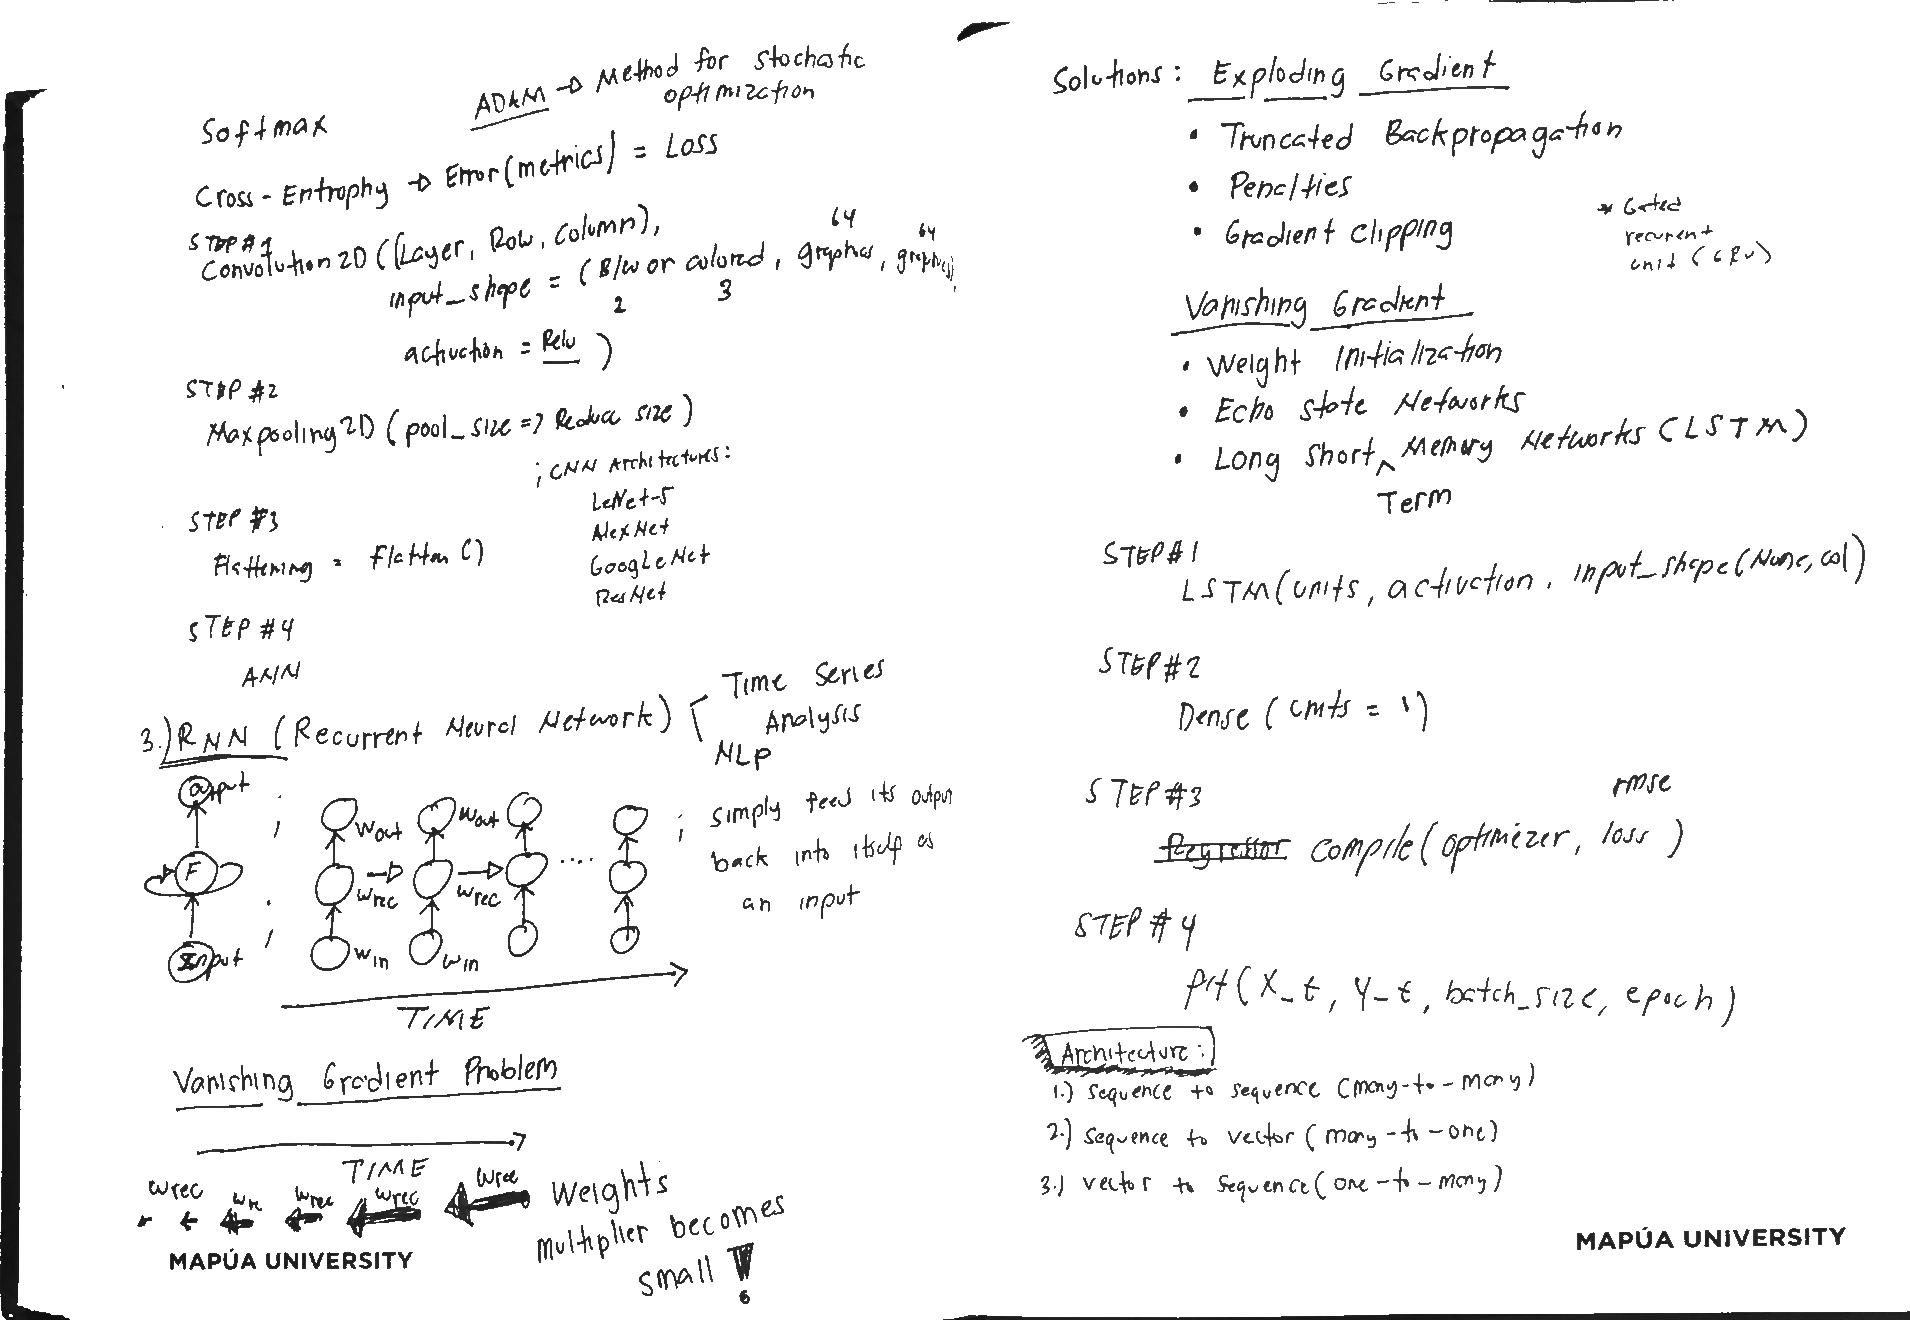 ADAM → Method for stochastic
optimization
Softmax
Cross-Entrophy → Error(metrics) = Loss
STEP #1
Convolution2D((Layer, Row, Column),
input_shape = (B/W or colored, graphics, graphics),
2 3 64 64
activation = Relu )
STEP #2
Maxpooling2D (pool_size => Reduce size)
; CNN Architectures:
LeNet-5
AlexNet
GoogLeNet
ResNet
STEP #3
Flattening = Flatten ()
STEP #4
ANN
3.) RNN (Recurrent Neural Network)
Time Series
Analysis
NLP
output ;
Wout Wout
F
Wrec Wrec ....
Input ;
Win Win
; simply feed its output
back into itself as
an input
TIME
Vanishing Gradient Problem
TIME
Wrec Wrec Wrec Wrec Wrec
Weights
multiplier becomes
small !
MAPÚA UNIVERSITY
Solutions: Exploding Gradient
• Truncated Backpropagation
• Penalties
• Gradient clipping
* Gated
recurent
unit (GRU)
Vanishing Gradient
• Weight Initialization
• Echo state Networks
• Long Short ^ Memory Networks (LSTM)
Term
STEP #1
LSTM(units, activation, input_shape(None, col)
STEP #2
Dense (units = 1)
STEP #3
rmse
Regressor compile(optimiezer, loss )
STEP #4
fit(X_t, Y_t, batch_size, epoch)
Architecture:
1.) sequence to sequence (many-to-many)
2.) sequence to vector (many-to-one)
3.) vector to sequence (one-to-many)
MAPÚA UNIVERSITY